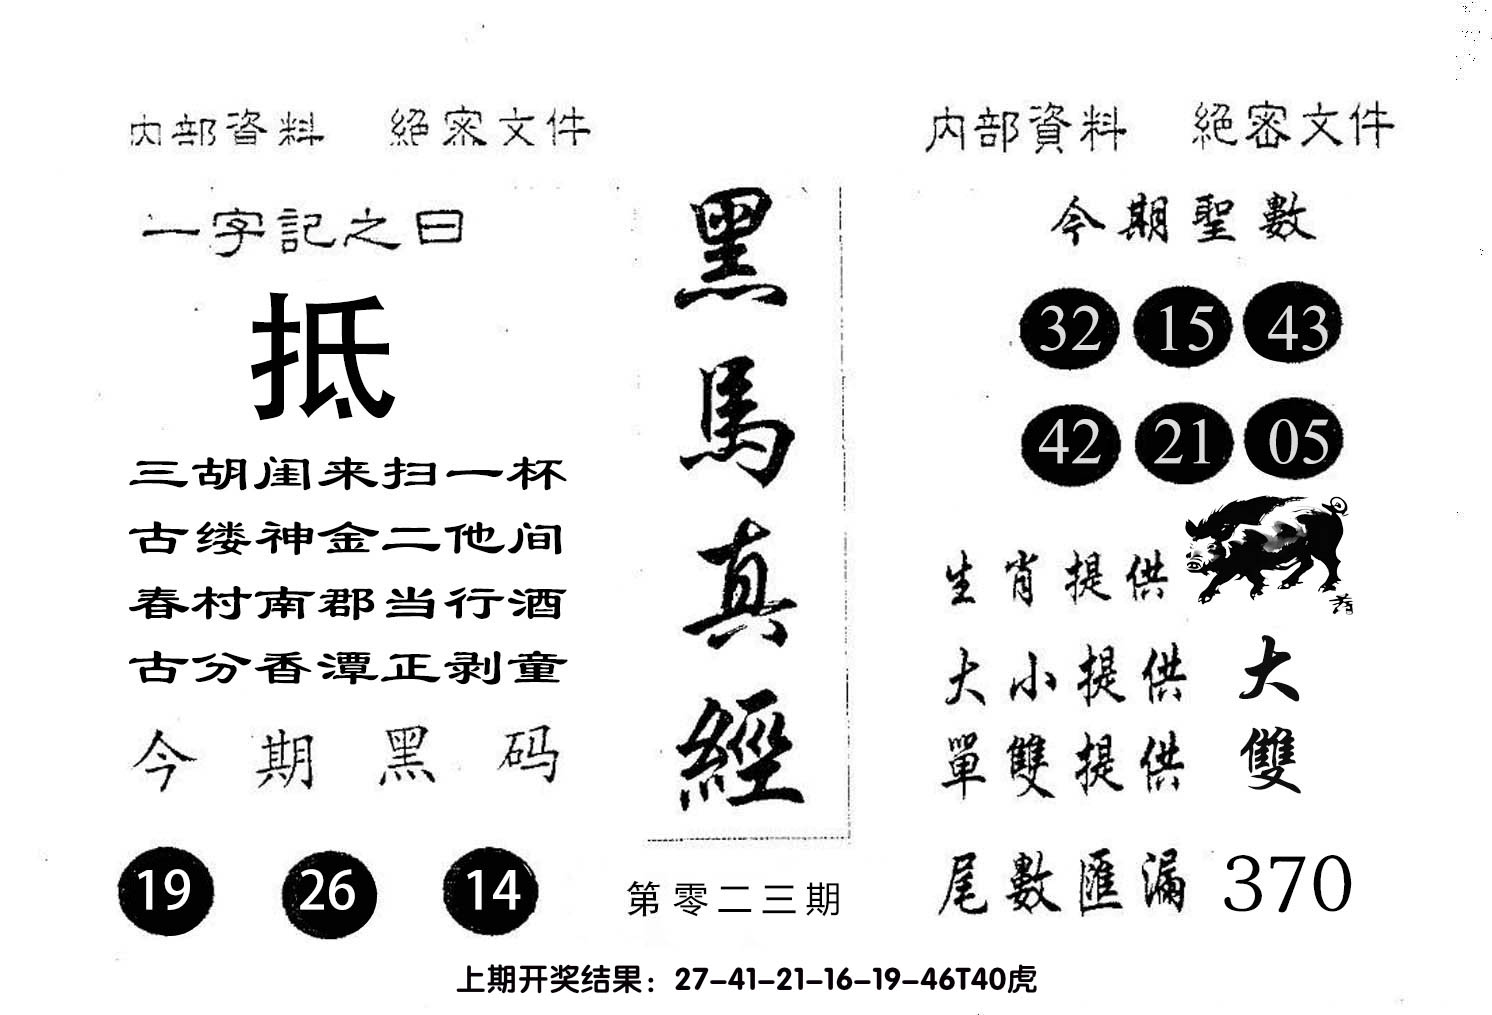 内部資料 絕密文件
一字記之曰
抵
三胡闺来扫一杯
古缕神金二他间
春村南郡当行酒
古分香潭正剥童
今期黑码
19 26 14
黑馬真經
第零二三期
内部資料 絕密文件
今期聖數
32 15 43
42 21 05
生肖提供
大小提供 大
單雙提供 雙
尾數匯漏 370
上期开奖结果：27-41-21-16-19-46T40虎